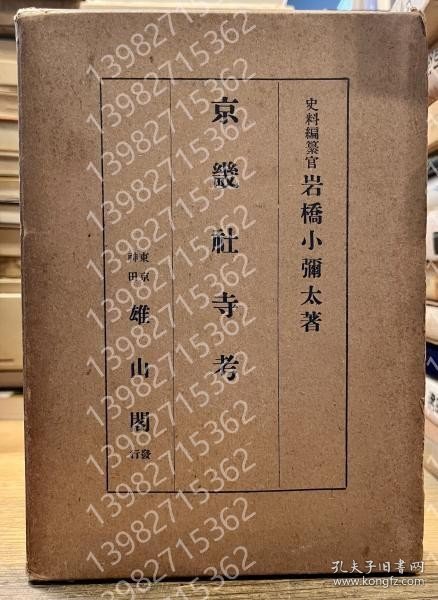 史料編纂官 岩橋小彌太著
京畿社寺考
東京神田 雄山閣發行
13982715362
13982715362
13982715362
13982715362
13982715362
13982715362
13982715362
13982715362
13982715362
13982715362
13982715362
13982715362
孔夫子旧书网
book.kongfz.com